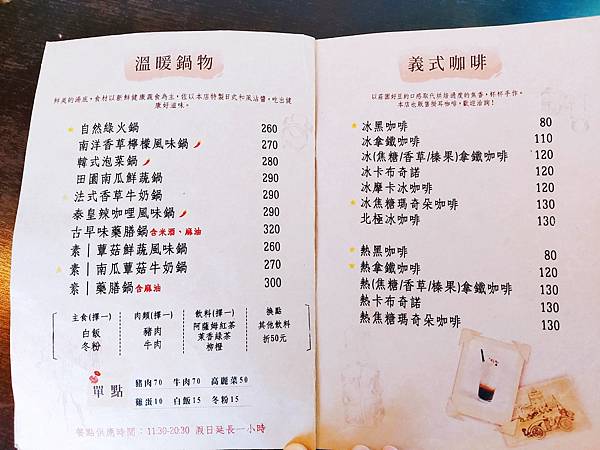 溫暖鍋物
鮮美的湯底，食材以新鮮健康蔬食為主，佐以本店特製日式和風沾醬，吃出健
康好滋味。
自然綠火鍋 260
南洋香草檸檬風味鍋 270
韓式泡菜鍋 280
田園南瓜鮮蔬鍋 290
法式香草牛奶鍋 290
泰皇辣咖哩風味鍋 290
古早味藥膳鍋含米酒、麻油 320
素｜蕈菇鮮蔬風味鍋 260
素｜南瓜蕈菇牛奶鍋 270
素｜藥膳鍋含麻油 300
主食(擇一) 肉類(擇一) 飲料(擇一) 換點
白飯 豬肉 阿薩姆紅茶 其他飲料
冬粉 牛肉 茉香綠茶 折50元
柳橙
單點
豬肉70 牛肉70 高麗菜50
雞蛋10 白飯15 冬粉15
餐點供應時間：11:30-20:30 假日延長一小時
義式咖啡
以莊園好豆的口感取代烘焙過度的焦香，杯杯手作。
本店也販售掛耳咖啡，歡迎洽詢！
冰黑咖啡 80
冰拿鐵咖啡 110
冰(焦糖/香草/榛果)拿鐵咖啡 120
冰卡布奇諾 120
冰摩卡冰咖啡 130
冰焦糖瑪奇朵咖啡 130
北極冰咖啡 130
熱黑咖啡 80
熱拿鐵咖啡 120
熱(焦糖/香草/榛果)拿鐵咖啡 130
熱卡布奇諾 130
熱焦糖瑪奇朵咖啡 130